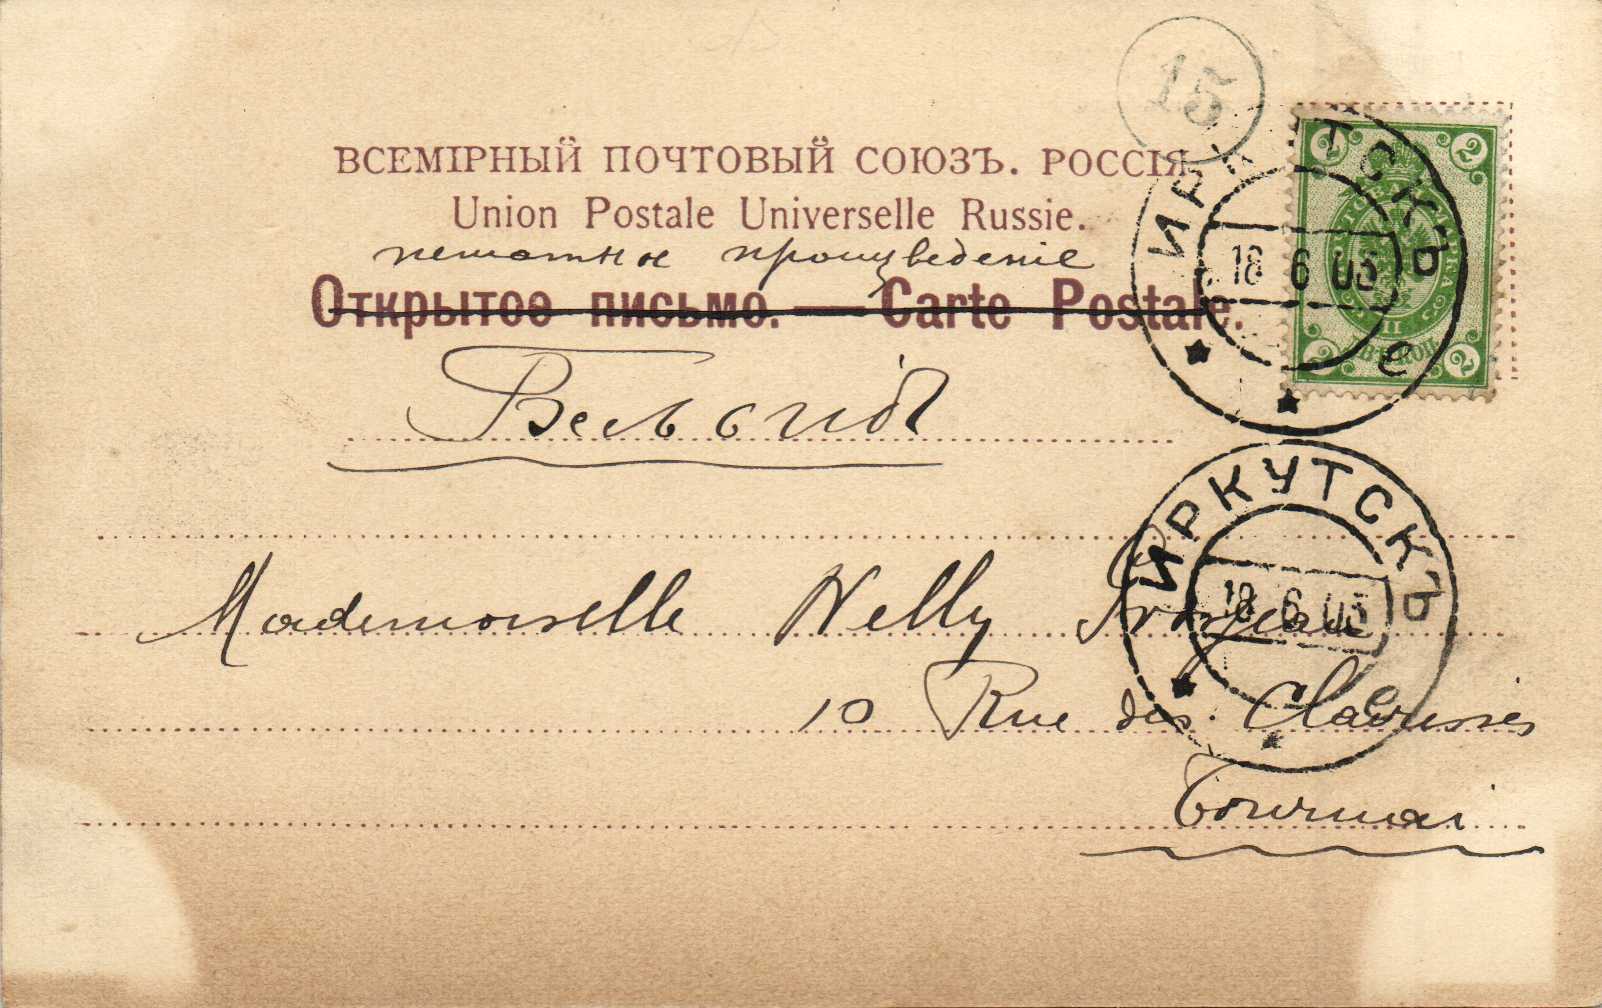 15
ВСЕМІРНЫЙ ПОЧТОВЫЙ СОЮЗЪ. РОССІЯ
Union Postale Universelle Russie.
печатное произведеніе
Открытое письмо. — Carte Postale.
ИРКУТСКЪ
18 6 05
е
2 2
2 2
Бельгія
ИРКУТСКЪ
18 6 05
е
Mademoiselle Nelly
10 Rue des
Tournai